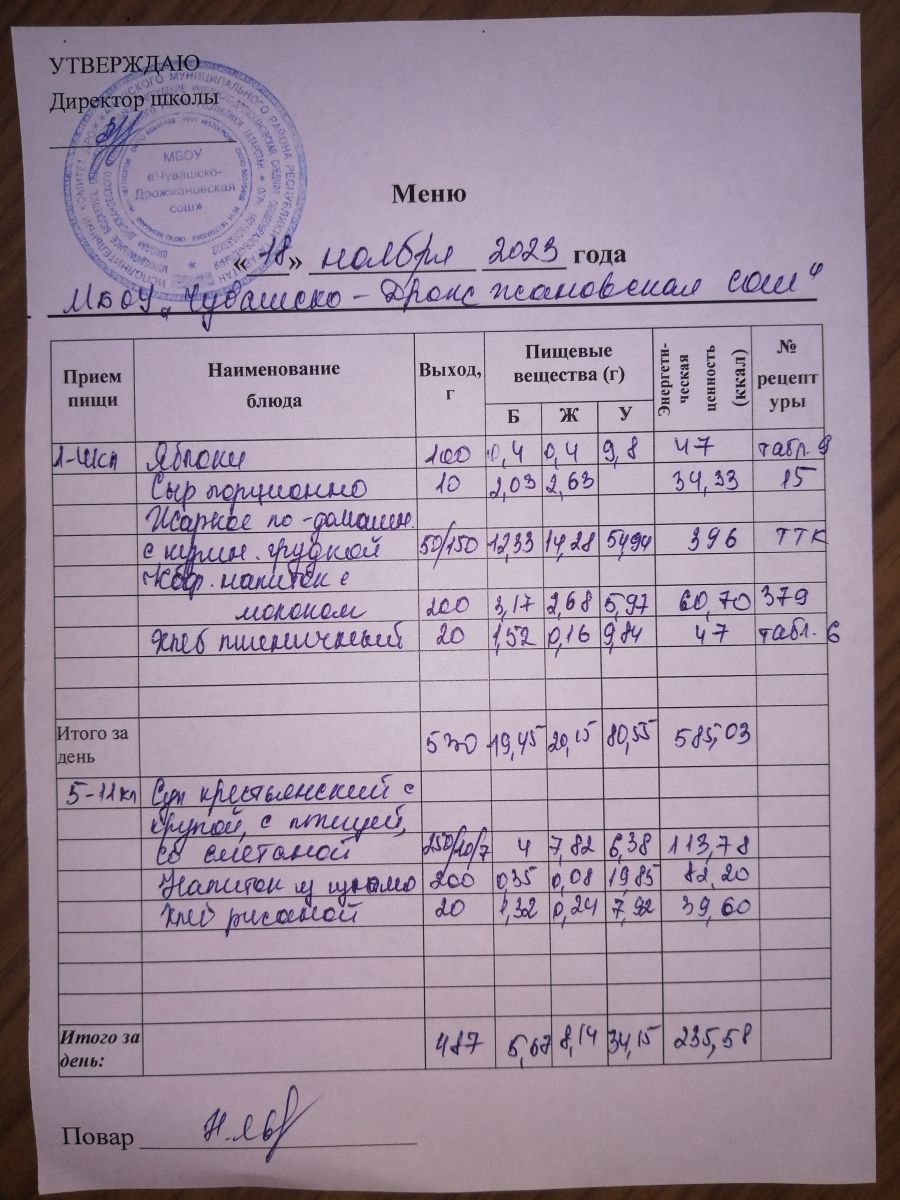 УТВЕРЖДАЮ
Директор школы
МБОУ
«Чувашско-
Дрожжановская
сош»
Меню
«18» ноября 2023 года
МБОУ „Чувашско-Дрожжановская сош"
Прием пищи Наименование блюда Выход, г Пищевые вещества (г) Энергети-ческая ценность (ккал) № рецептуры
Б Ж У
Яблоки 100 0,4 0,4 9,8 47 табл. 9
Сыр порционно 10 2,03 2,63 34,33 15
Жаркое по-домашн.
с курин. грудкой 50/150 12,33 14,28 54,94 396 ТТК
Коф. напиток с
молоком 200 3,17 2,68 5,97 60,70 379
Хлеб пшеничный 20 1,52 0,16 9,84 47 табл. 6
Итого за день 530 19,45 20,15 80,55 585,03
5-11кл Суп крестьянский с
крупой, с птицей,
со сметаной 250/10/7 4 7,82 6,38 113,78
Напиток 200 0,35 0,08 19,85 82,20
Хлеб ржаной 20 1,32 0,24 7,92 39,60
Итого за день: 487 5,67 8,14 34,15 235,58
Повар